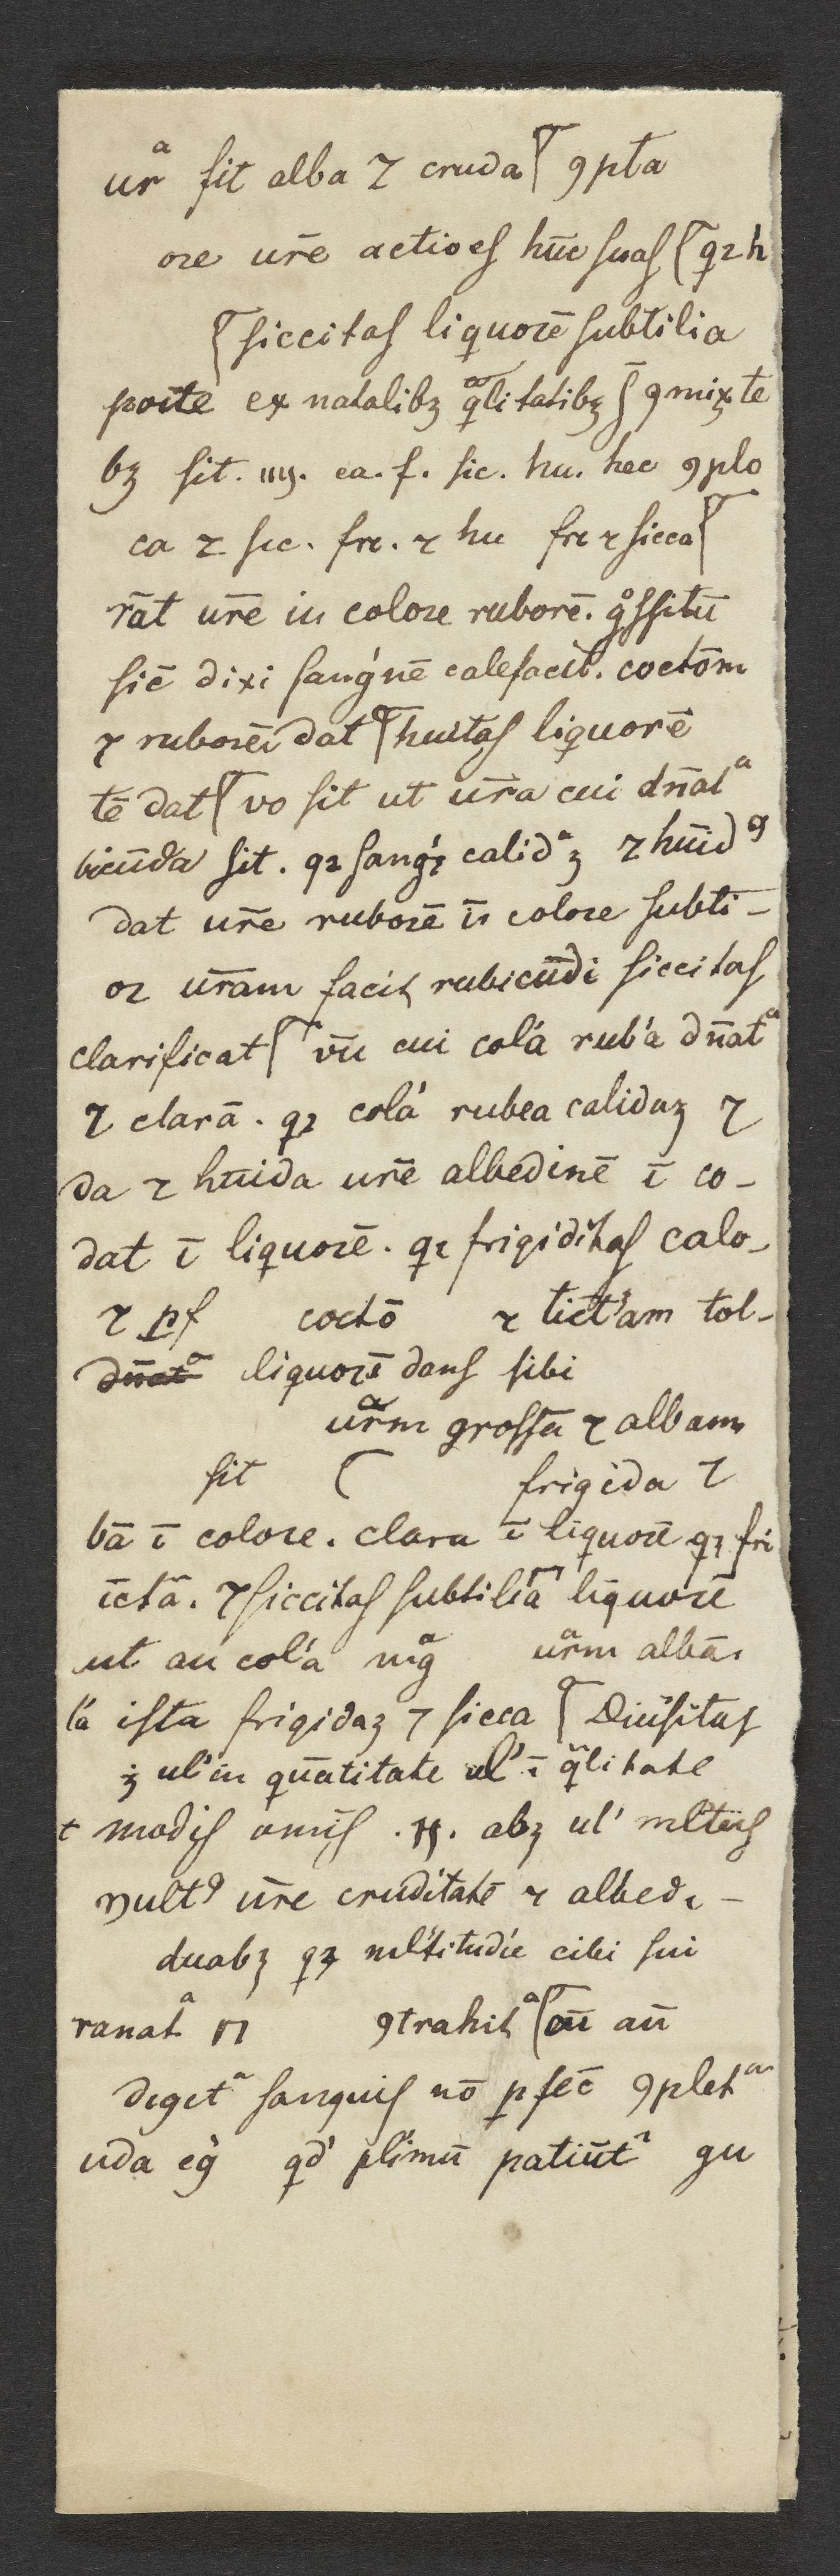 urᵃ sit alba ⁊ cruda ꝯpta
oꝛe ur̄e actioes hūc suas qꝛ h
siccitas liquoꝛē subtilia
poīte ex natalibꝫ qᵃlitatibꝫ ꝯmixte
bꝫ sit. iiij. ca. f. sic. hu. hec ꝯplo
ca ⁊ sic. fri. ⁊ hu fri ⁊ sicca
r̄at ur̄e in coloꝛe ruborē. gͦssitū
sic̄ dixi sang'nē calefacit. coctōm
⁊ ruboꝛē dat huītas liquorē
tē dat vo sit ut ur̄a cui dn̄atᵃ
bicūda sit. qꝛ sang' calidᵃꝫ ⁊ hūidꝰ
dat ur̄e ruboꝛē ī coloꝛe subti-
oꝛ ur̄am facit rubicūdi siccitas
clarificat vū cui col'a rub'a dn̄atᵃ
⁊ clarā. qꝛ col'a rubea calidaꝫ ⁊
da ⁊ hūida ur̄e albedinē ī co-
dat ī liquoꝛē. qꝛ frigiditas calo-
⁊ ꝑf coctō ⁊ tīct'am tol-
liquoꝛē dans sibi
urᵃm grossā ⁊ albam
sit frigida ⁊
bā ī coloꝛe. clara ī liquoꝛē qꝫ fri
īctā. ⁊ siccitas subtilia liquoꝛē
ut au col'a nigᵃ urᵃm albā.
l'a ista frigidaꝫ ⁊ sicca Diu'sitas
ꝫ ul' in quātitate ul' ī qᵃlitate
t modis om̄is .ij. abꝫ ul' mltiis
multꝰ ur̄e cruditatē ⁊ albedi-
duabꝫ qꝫ ml'titudīe cibi sui
ranatᵃ ꝯtrahitᵃ cū aū
degetᵃ sanguis nō ꝑfec̄ ꝯpletᵃ
uda eg' qd' pl'imū patiūtᵃ gu